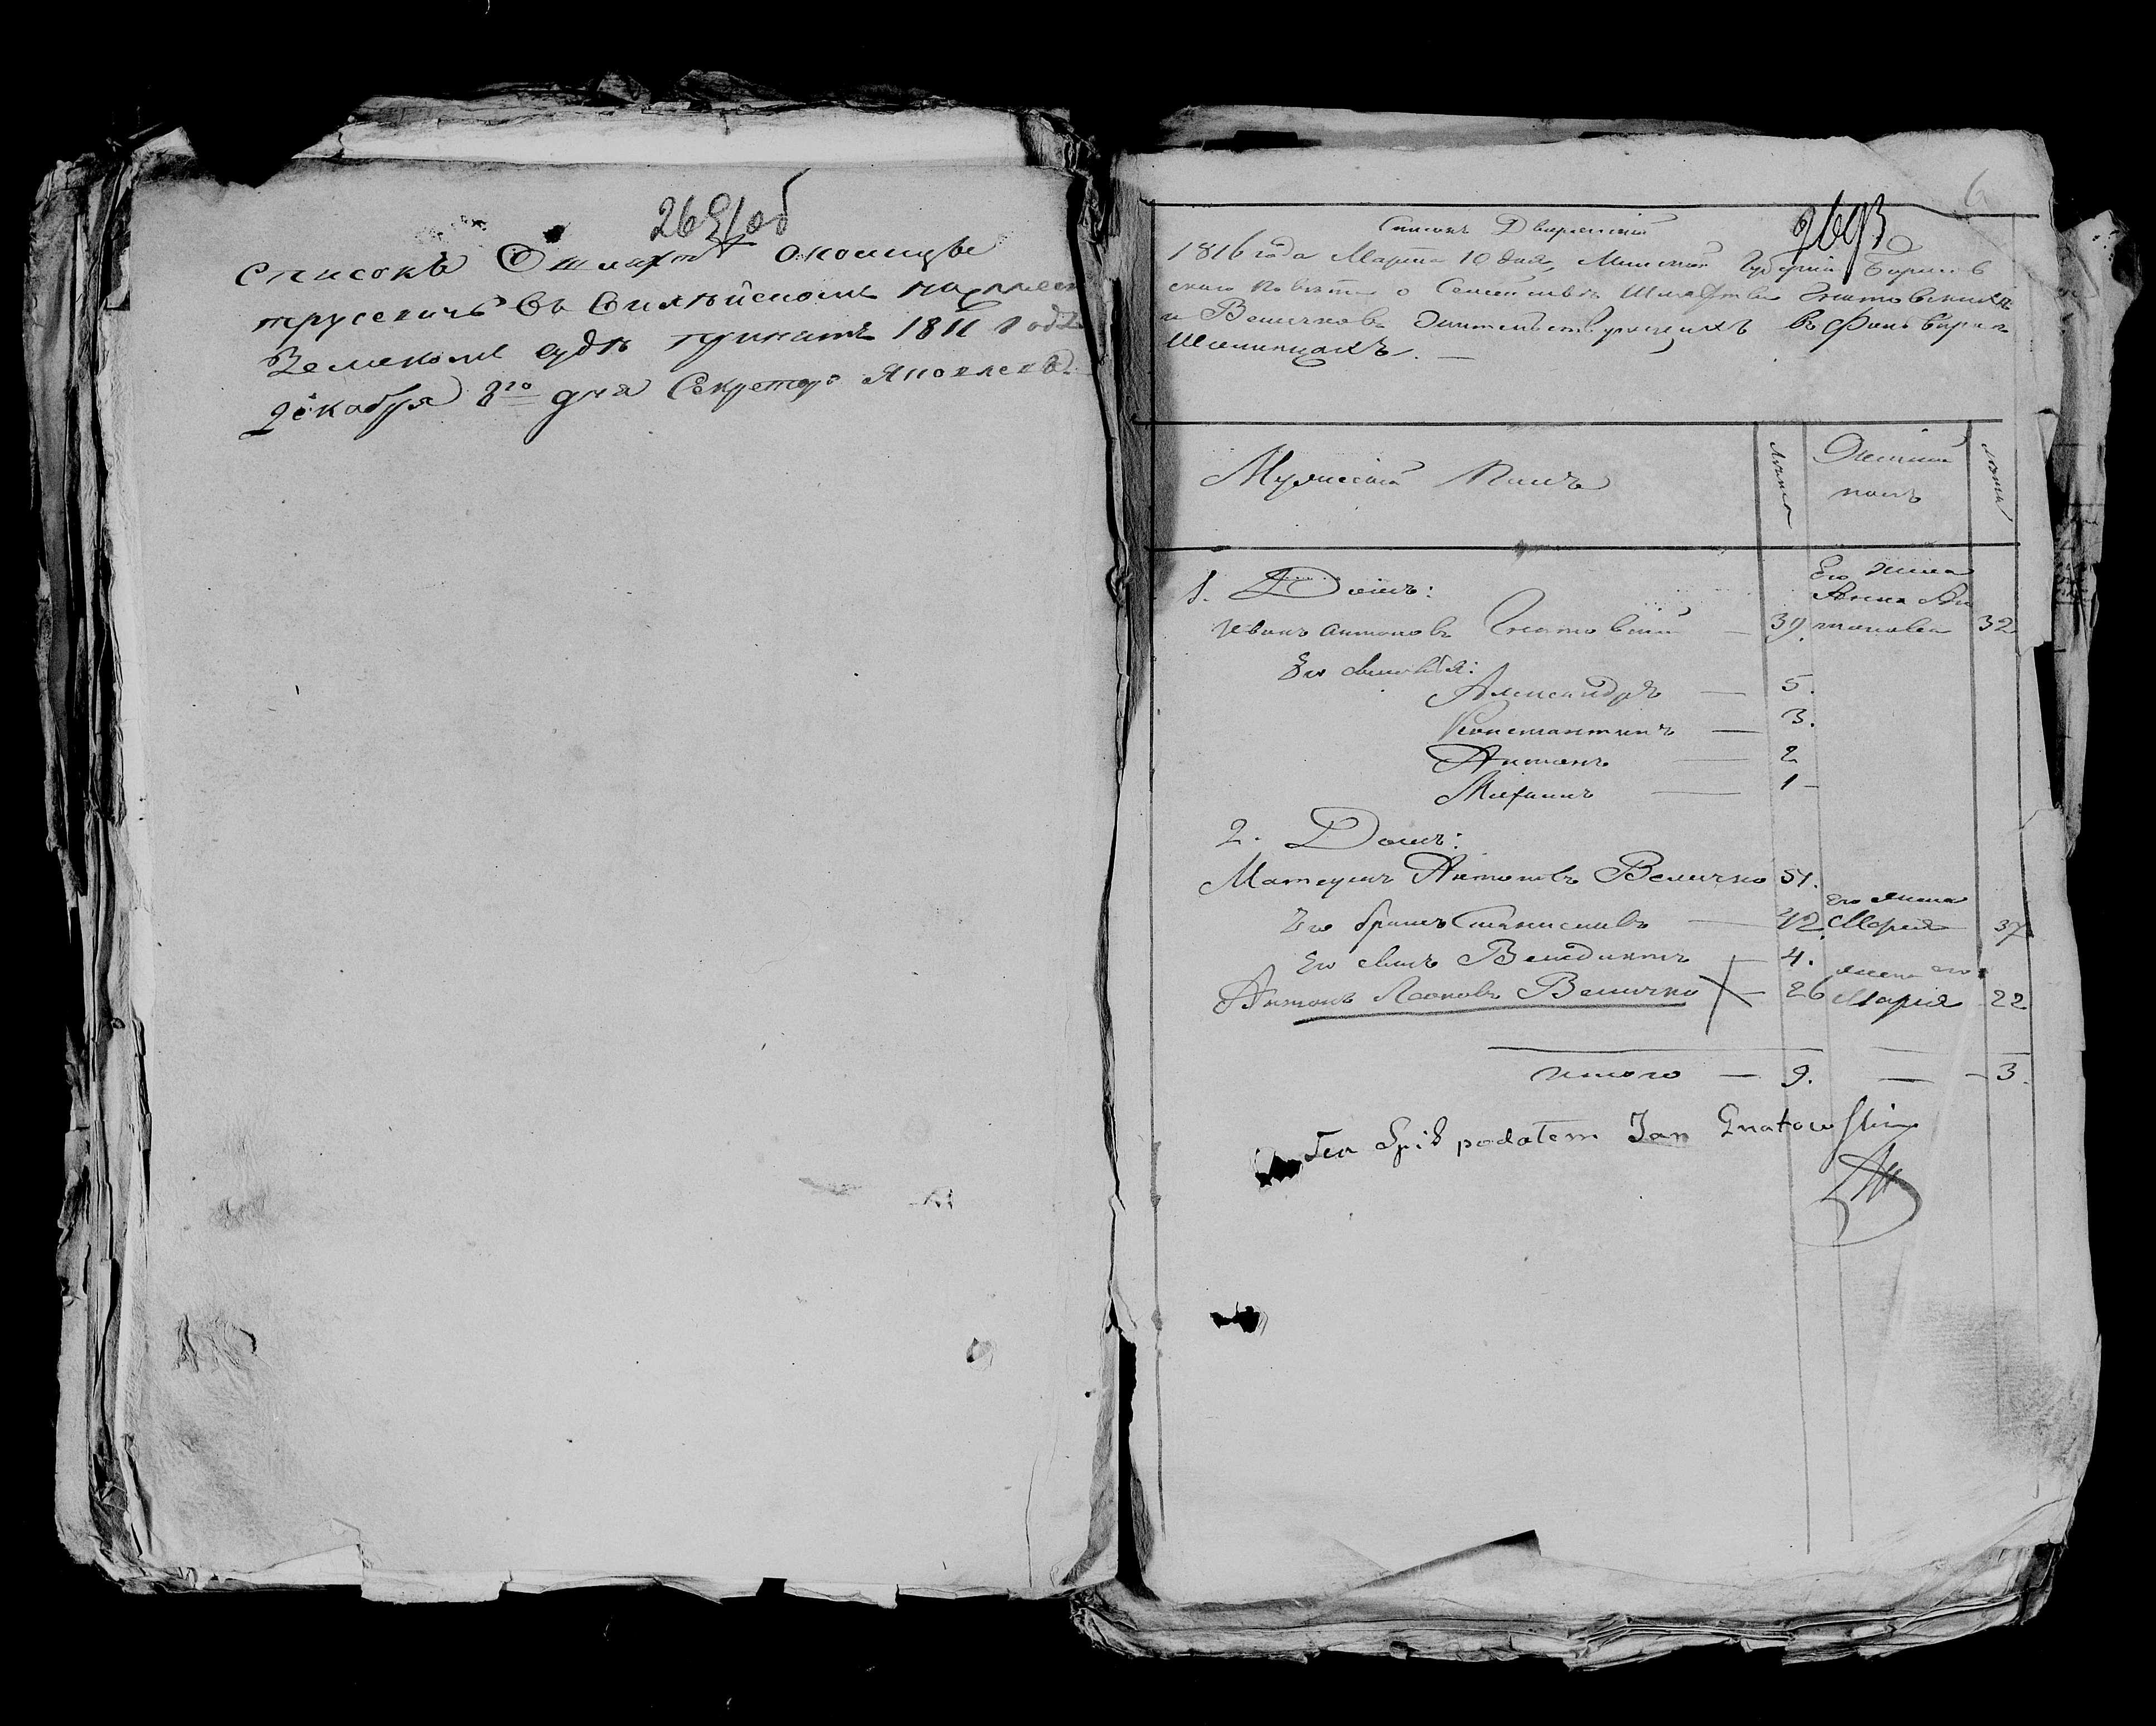 2691об
Списокъ О шляхте околицы
трусевичъ Въ Вилѣйскомъ
Земскомъ судѣ принятъ 1811 года
декабря 8го дня Секретарь
2693
6
Списокъ Дворянский
1816 года Марта 10 дня, Минской Губернии Борисов
скаго Повѣта о Семействѣ Шляхтича Гнатовскихъ
и Величковъ Жительствующихъ въ
Мужеский Полъ
лѣта
Женский
полъ
лѣта
1. Домъ:
Иванъ Антоновъ Гнатовский — 39.
Его жена
Анна Ан
тонова 32
Его сыновья:
Александръ — 5.
Константинъ — 3.
Антонъ — 2
Михаилъ — 1
2. Домъ:
Матеушъ Антоновъ Величко 51.
Его братъ Станиславъ — 42.
его жена
Мария 37
Его сынъ Венедиктъ — 4.
Антонъ Леоновъ Величко — 26
жена его
Мария 22
итого — 9. — 3.
Ten Spis podałem Jan Gnatowski